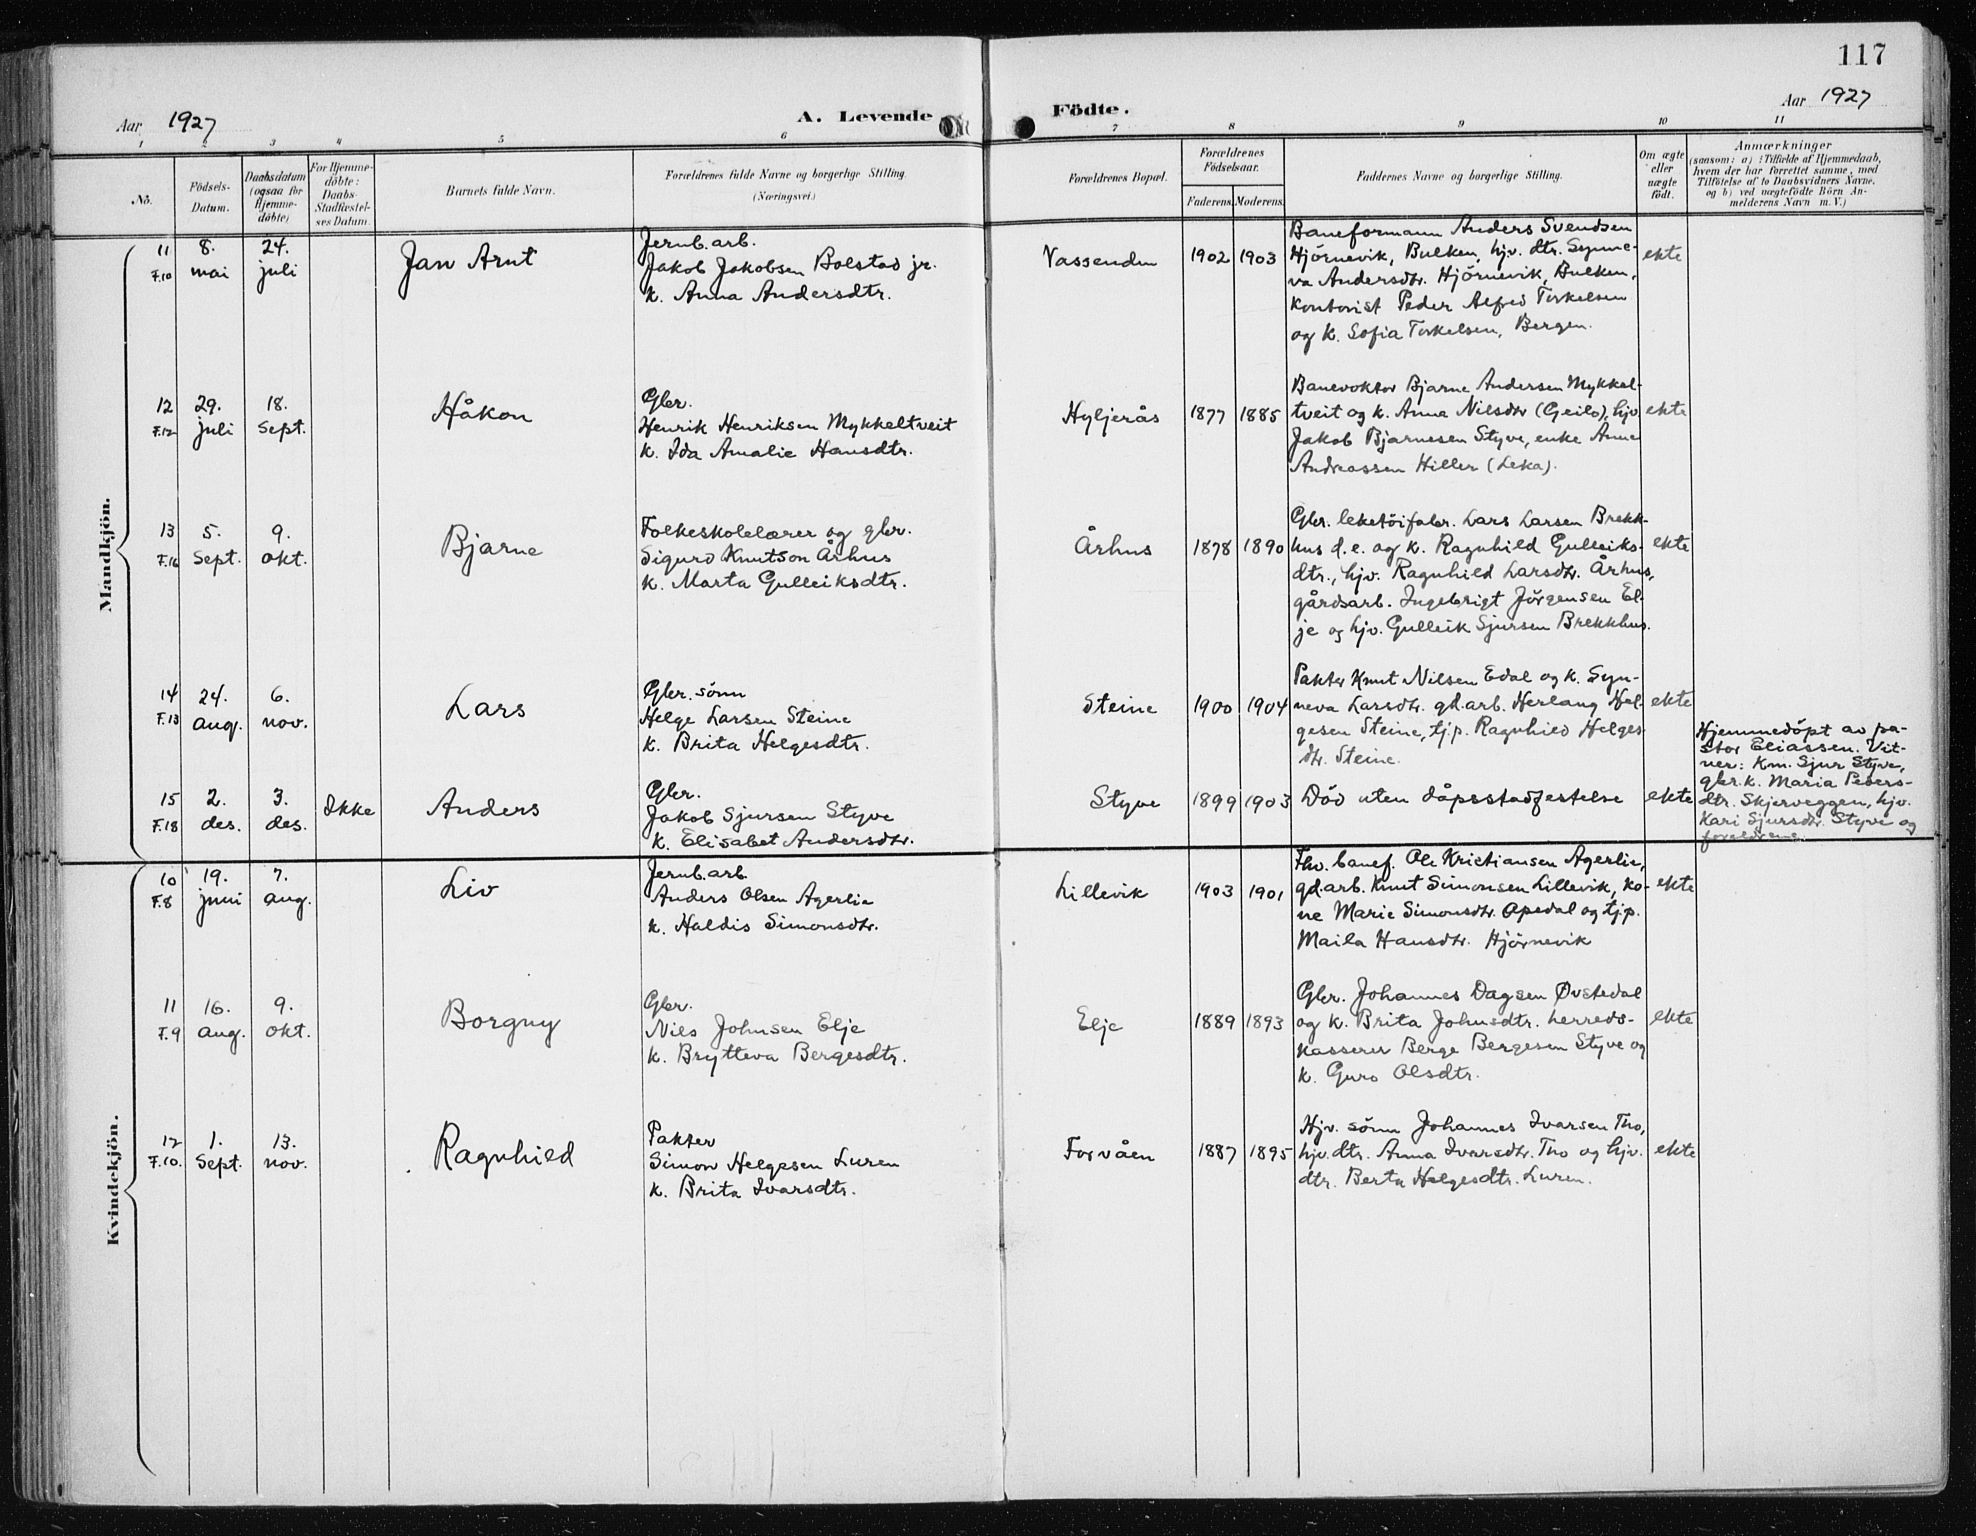 117
Aar 1927
A. Levende Födte.
Aar 1927
1 2 3 4 5 6 7 8 9 10 11
No.
Födsels-
Datum.
Daabsdatum
(ogsaa for
Hjemme-
döbte)
For Hjemme-
döbte:
Daabs
Stadfæstel-
ses Datum.
Barnets fulde Navn.
Forældrenes fulde Navne og borgerlige Stilling.
(Næringsvei.)
Forældrenes Bopæl.
Forældrenes
Födselsaar.
Faderens. Moderens.
Faddernes Navne og borgerlige Stilling.
Om ægte
eller
uægte
födt.
Anmærkninger
(saasom: a) Tilfælde af Hjemmedaab,
hvem der har forrettet samme, med
Tilföielse af to Daabsvidners Navne,
og b) ved uægtefödte Börn An-
melderens Navn m. V.)
Mandkjön.
11
F.10
8.
mai
24.
juli
Jan Arnt
Jernb.arb.
Jakob Jakobsen Bolstad jr.
k. Anna Andersdtr.
Vassenden
1902 1903
Baneformann Anders Svendsen
Hjörnevik, Bulken, hjv. dtr. Synne-
va Andersdtr. Hjörnevik, Bulken,
kontorist Peder Alfred Torkelsen
og k. Sofia Torkelsen, Bergen.
ekte
12
F.12
29.
juli
18.
Sept.
Håkon
Gbr.
Henrik Henriksen Mykkeltveit
k. Ida Amalie Hansdtr.
Hyljerås
1877 1885
Banevokter Bjarne Andersen Mykkel-
tveit og k. Anna Nilsdtr (Geilo), hjv.
Jakob Bjarnesen Styve, enke Anna
Andreassen Hiller (Leka).
ekte
13
F.16
5.
Sept.
9.
okt.
Bjarne
Folkeskolelærer og gbr.
Sigurd Knutson Århus
k. Marta Gulleiksdtr.
Århus
1878 1890
Gbr. leketöifabr. Lars Larsen Brekk-
hus d.e. og k. Ragnhild Gulleiks-
dtr., hjv. Ragnhild Larsdtr. Århus,
gårdsarb. Ingebrigt Jörgensen El-
je og hjv. Gulleik Sjursen Brekkhus.
ekte
14
F.13
24.
aug.
6.
nov.
Lars
Gbr. sönn
Helge Larsen Steine
k. Brita Helgesdtr.
Steine
1900 1904
Pakter Knut Nilsen Edal og k. Syn-
neva Larsdtr. gd.arb. Herlaug Hel-
gesen Steine, tj.p. Ragnhild Helges
dtr. Steine.
ekte
15
F.18
2.
des.
3.
des.
Ikke
Anders
Gbr.
Jakob Sjursen Styve
k. Elisabet Andersdtr.
Styve
1899 1903
Död uten dåpsstadfestelse
ekte
Hjemmedöpt av pa-
stor Eliassen. Vit-
ner: Km. Sjur Styve,
gbr.k. Maria Peders-
dtr. Skjerveggen, hjv.
Kari Sjursdtr. Styve og
foreldrene.
Kvindekjön.
10
F.8
19.
juni
7.
aug.
Liv
Jernb.arb.
Anders Olsen Agerlie
k. Haldis Simonsdtr.
Lillevik
1903 1901
Fhv. banef. Ole Kristiansen Agerlie,
gd.arb. Knut Simonsen Lillevik, ko-
ne Marie Simonsdtr. Opedal og tj.p.
Maila Hansdtr. Hjörnevik
ekte
11
F.9
16.
aug.
9.
okt.
Borgny
Gbr.
Nils Johnsen Elje
k. Brytteva Bergesdtr.
Elje
1889 1893
Gbr. Johannes Dagsen Øvstedal
og k. Brita Johnsdtr. herreds-
kasserer Berge Bergesen Styve og
k. Guro Olsdtr.
ekte
12
F.10.
1.
Sept.
13.
nov.
Ragnhild
Pakter
Simon Helgesen Luren
k. Brita Ivarsdtr.
Forvåen
1887 1895
Hjv. sönn Johannes Ivarsen Tho,
hjv. dtr. Anna Ivarsdtr. Tho og hjv.
dtr. Berta Helgesdtr. Luren.
ekte